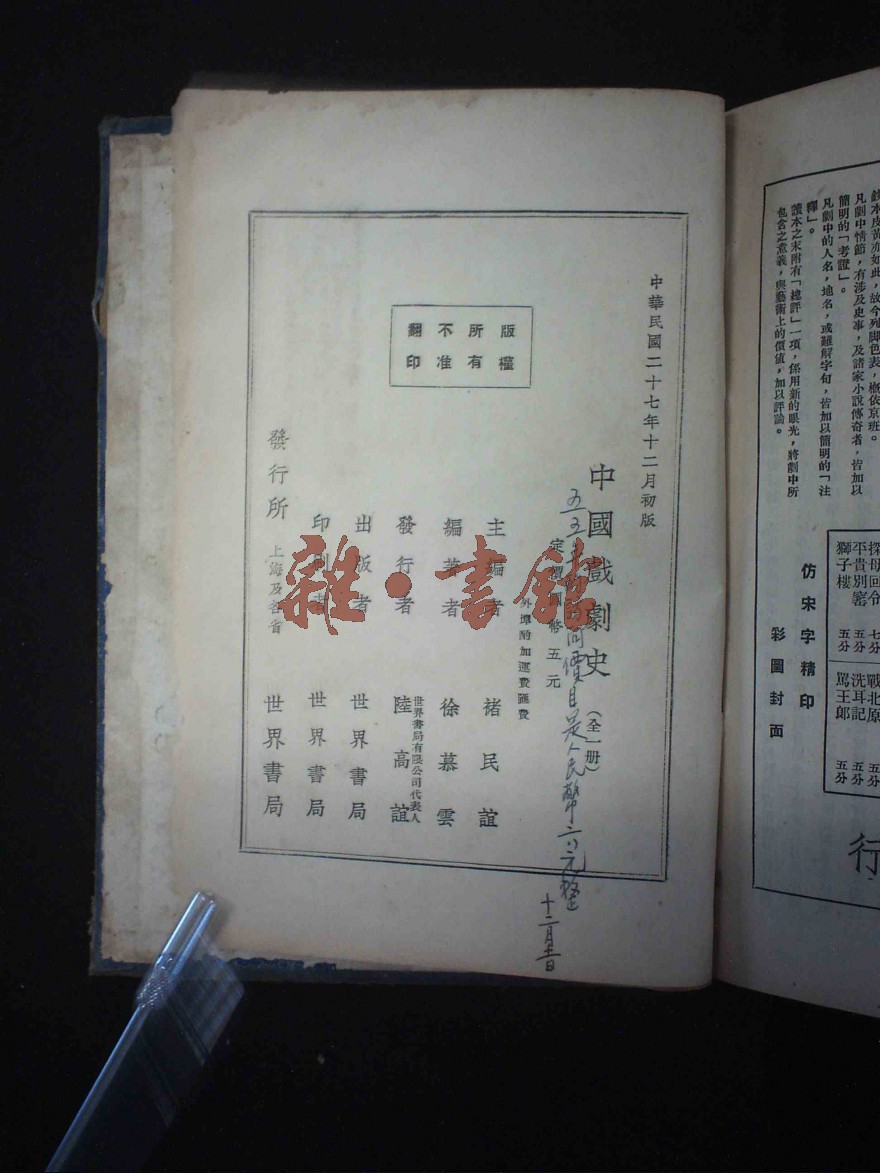 中華民國二十七年十二月初版
中國戲劇史（全一册）
定價國幣五元
外埠酌加運費匯費
主編者 褚民誼
編著者 徐慕雲
發行者 世界書局有限公司代表人 陸高誼
出版者 世界書局
印刷者 世界書局
發行所 上海及各省 世界書局
版權
所有
不准
翻印
價目是人民幣
元整
雜·書館
故今列脚色表，概依京班。
凡劇中情節，有涉及史事，及諸家小說傳奇者，皆加以
簡明的「考證」。
凡劇中的人名，地名，或難解字句，皆加以簡明的「注
釋」。
讀本之末附有「總評」一項，係用新的眼光，將劇中所
包含之意義，與藝術上的價值，加以評論。
仿宋字精印
彩圖封面
探母回令 七分
平貴別窰 五分
獅子樓 五分
戰北原 五分
洗耳記 五分
罵王郎 五分
行